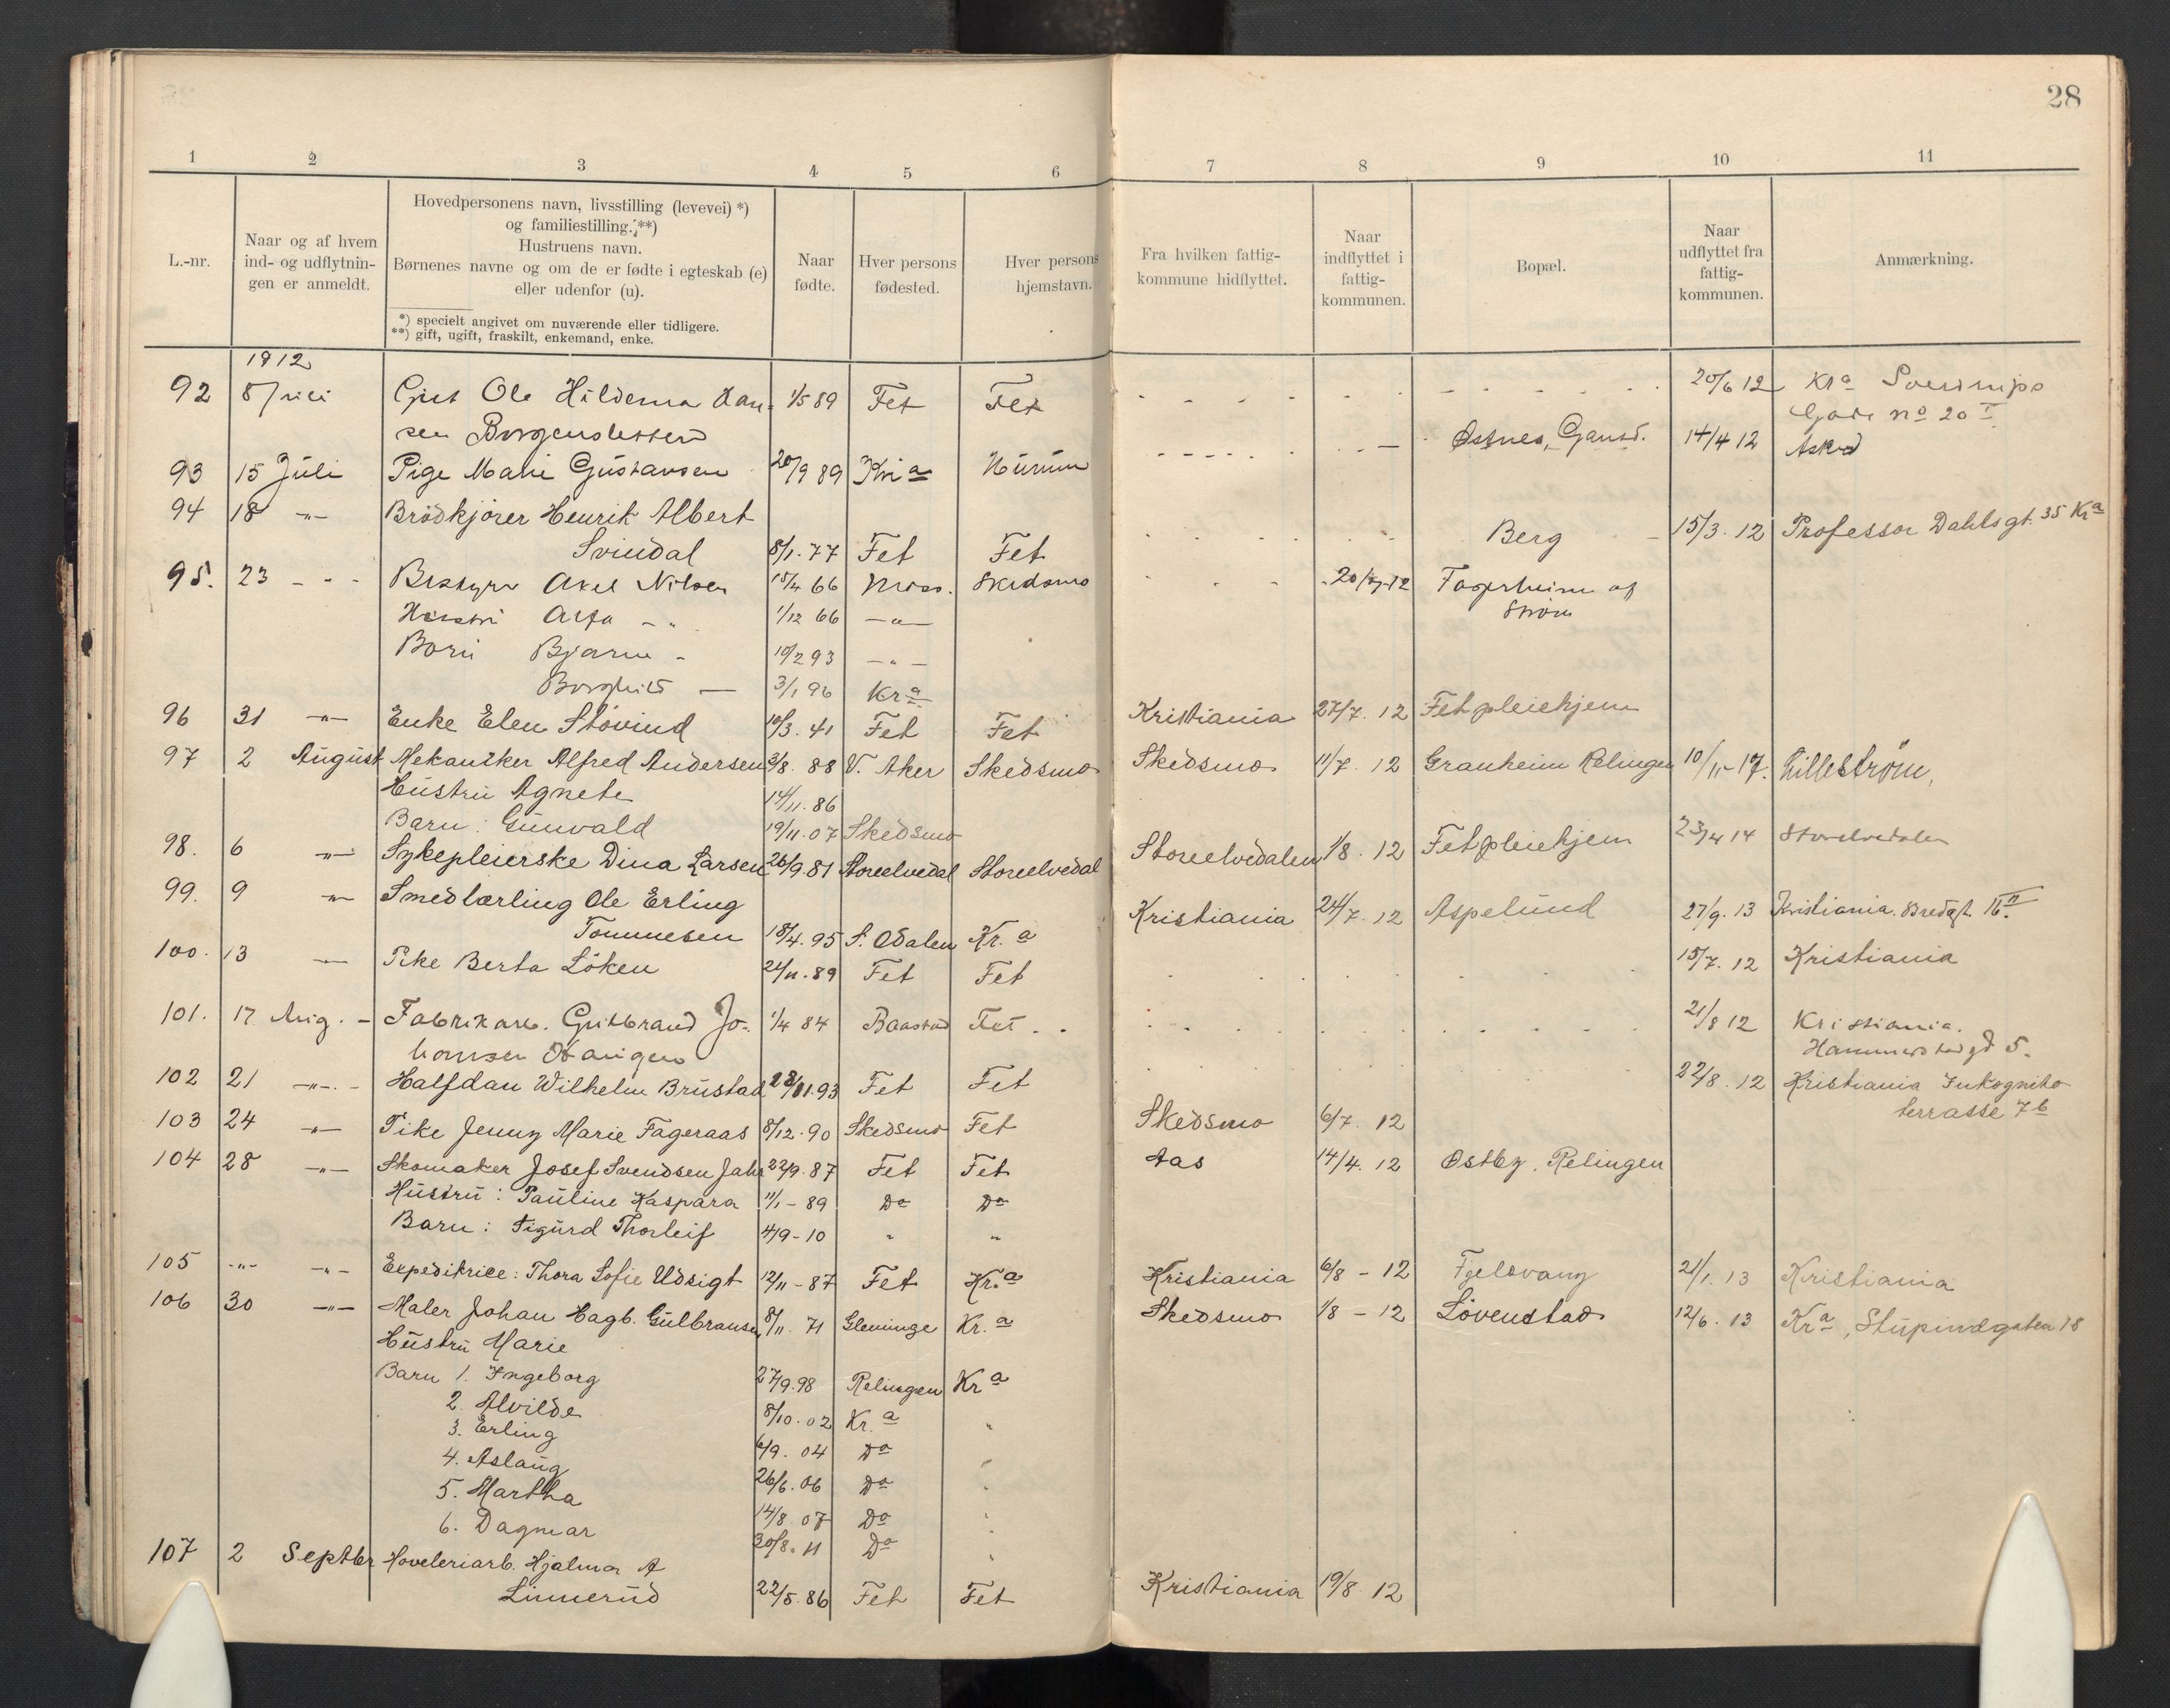 28
1 2 3 4 5 6 7 8 9 10 11
L.-nr.
Naar og af hvem
ind- og udflytnin-
gen er anmeldt.
Hovedpersonens navn, livsstilling (levevei) *)
og familiestilling. **)
Hustruens navn.
Børnenes navne og om de er fødte i egteskab (e)
eller udenfor (u).
*) specielt angivet om nuværende eller tidligere.
**) gift, ugift, fraskilt, enkemand, enke.
Naar
fødte.
Hver persons
fødested.
Hver persons
hjemstavn.
Fra hvilken fattig-
kommune hidflyttet.
Naar
indflyttet i
fattig-
kommunen.
Bopæl.
Naar
udflyttet fra
fattig-
kommunen.
Anmærkning.
1912
92 8 Ole 1/5 89 Fet Fet 20/6 12 Kra
sen Gade no 20 I
93 15 Juli Pige Gustavsen 20/9 89 Kria Hurum 14/4 12 Asker
94 18 -"- Brödkjörer Henrik Albert
Svindal 8/1. 77 Fet Fet Berg 15/3. 12 Professor Dahlsgt. 35 Kra
95. 23 - " - Bestyrer Axel Nilsen 15/4 66 Moss. Skedsmo 12
Hustru - " 1/12 66 -"-
Börn Bjarne - 10/2 93 -"-
Borghild - 3/1 96 Kra
96 31 -"- Enke Elen Stövind 10/3. 41 Fet Fet Kristiania 27/7. 12 Fet pleiehjem
97 2 August Mekaniker Alfred Andersen 3/8. 88 V. Aker Skedsmo Skedsmo 11/7. 12 Granheim Relingen 10/11-17. Lilleström,
Hustru Agnete 14/11. 86
Barn: Gunvald 19/11. 07 Skedsmo
98. 6 -"- Sykepleierske Dina Larsen 26/9. 81 Storelvedal Storelvedal Storelvedalen 1/8. 12 Fet pleiehjem 23/4 14 Storelvedalen
99. 9 -"- Smedlærling Ole Erling
Tommesen 18/4. 95 S. Odalen Kr.a Kristiania 24/7. 12 Aspelund 27/9. 13 Kristiania. Bredgt. 16 II
100. 13 -"- Pike Berta Löken 24/11. 89 Fet Fet 15/7. 12 Kristiania
101. 17 Aug. - Fabrikarb. Gulbrand Jo- 1/4 84 Baastad Fet 21/8 12 Kristiania.
hansen 5.
102 21 -"- Halfdan Wilhelm Brustad 93 Fet Fet 22/8. 12 Kristiania Inkognito
terrasse 7b
103 24 -"- Pike Jenny Marie Fageraas 8/12. 90 Skedsmo Fet Skedsmo 6/7. 12
104 28 -"- Skomaker Josef Svendsen Jahr 22/9. 87 Fet Fet Aas 14/4. 12 Östby, Relingen
Hustru: Pauline Kaspara 11/1 - 89 Do Do
Barn: Sigurd Thorleif 4/9 - 10 " "
105 -"- -"- Expeditrice: Thora Sofie Udsigt 12/11 - 87 Fet Kr.a Kristiania 6/8 - 12 Fjelsvang 21/1. 13 Kristiania
106 30 -"- Maler Johan Hagb. Gulbransen 8/11. 71 Glemminge Kr.a Skedsmo 1/8 - 12 Lövenstad 12/6. 13 Kra,
Hustru Marie
Barn 1. Ingeborg 27/9. 98 Relingen Kra
2. Alvilde 8/10. 02 Kr.a "
3. Erling 6/9. 04 Do "
4. Aslaug 26/6. 06 Do "
5. Martha 14/8. 07 Do "
6. Dagmar 30/8. 11 Do "
107 2 Septbr Hoveleriarb. Hjalmar A
Linnerud 22/5. 86 Fet Fet Kristiania 19/8. 12